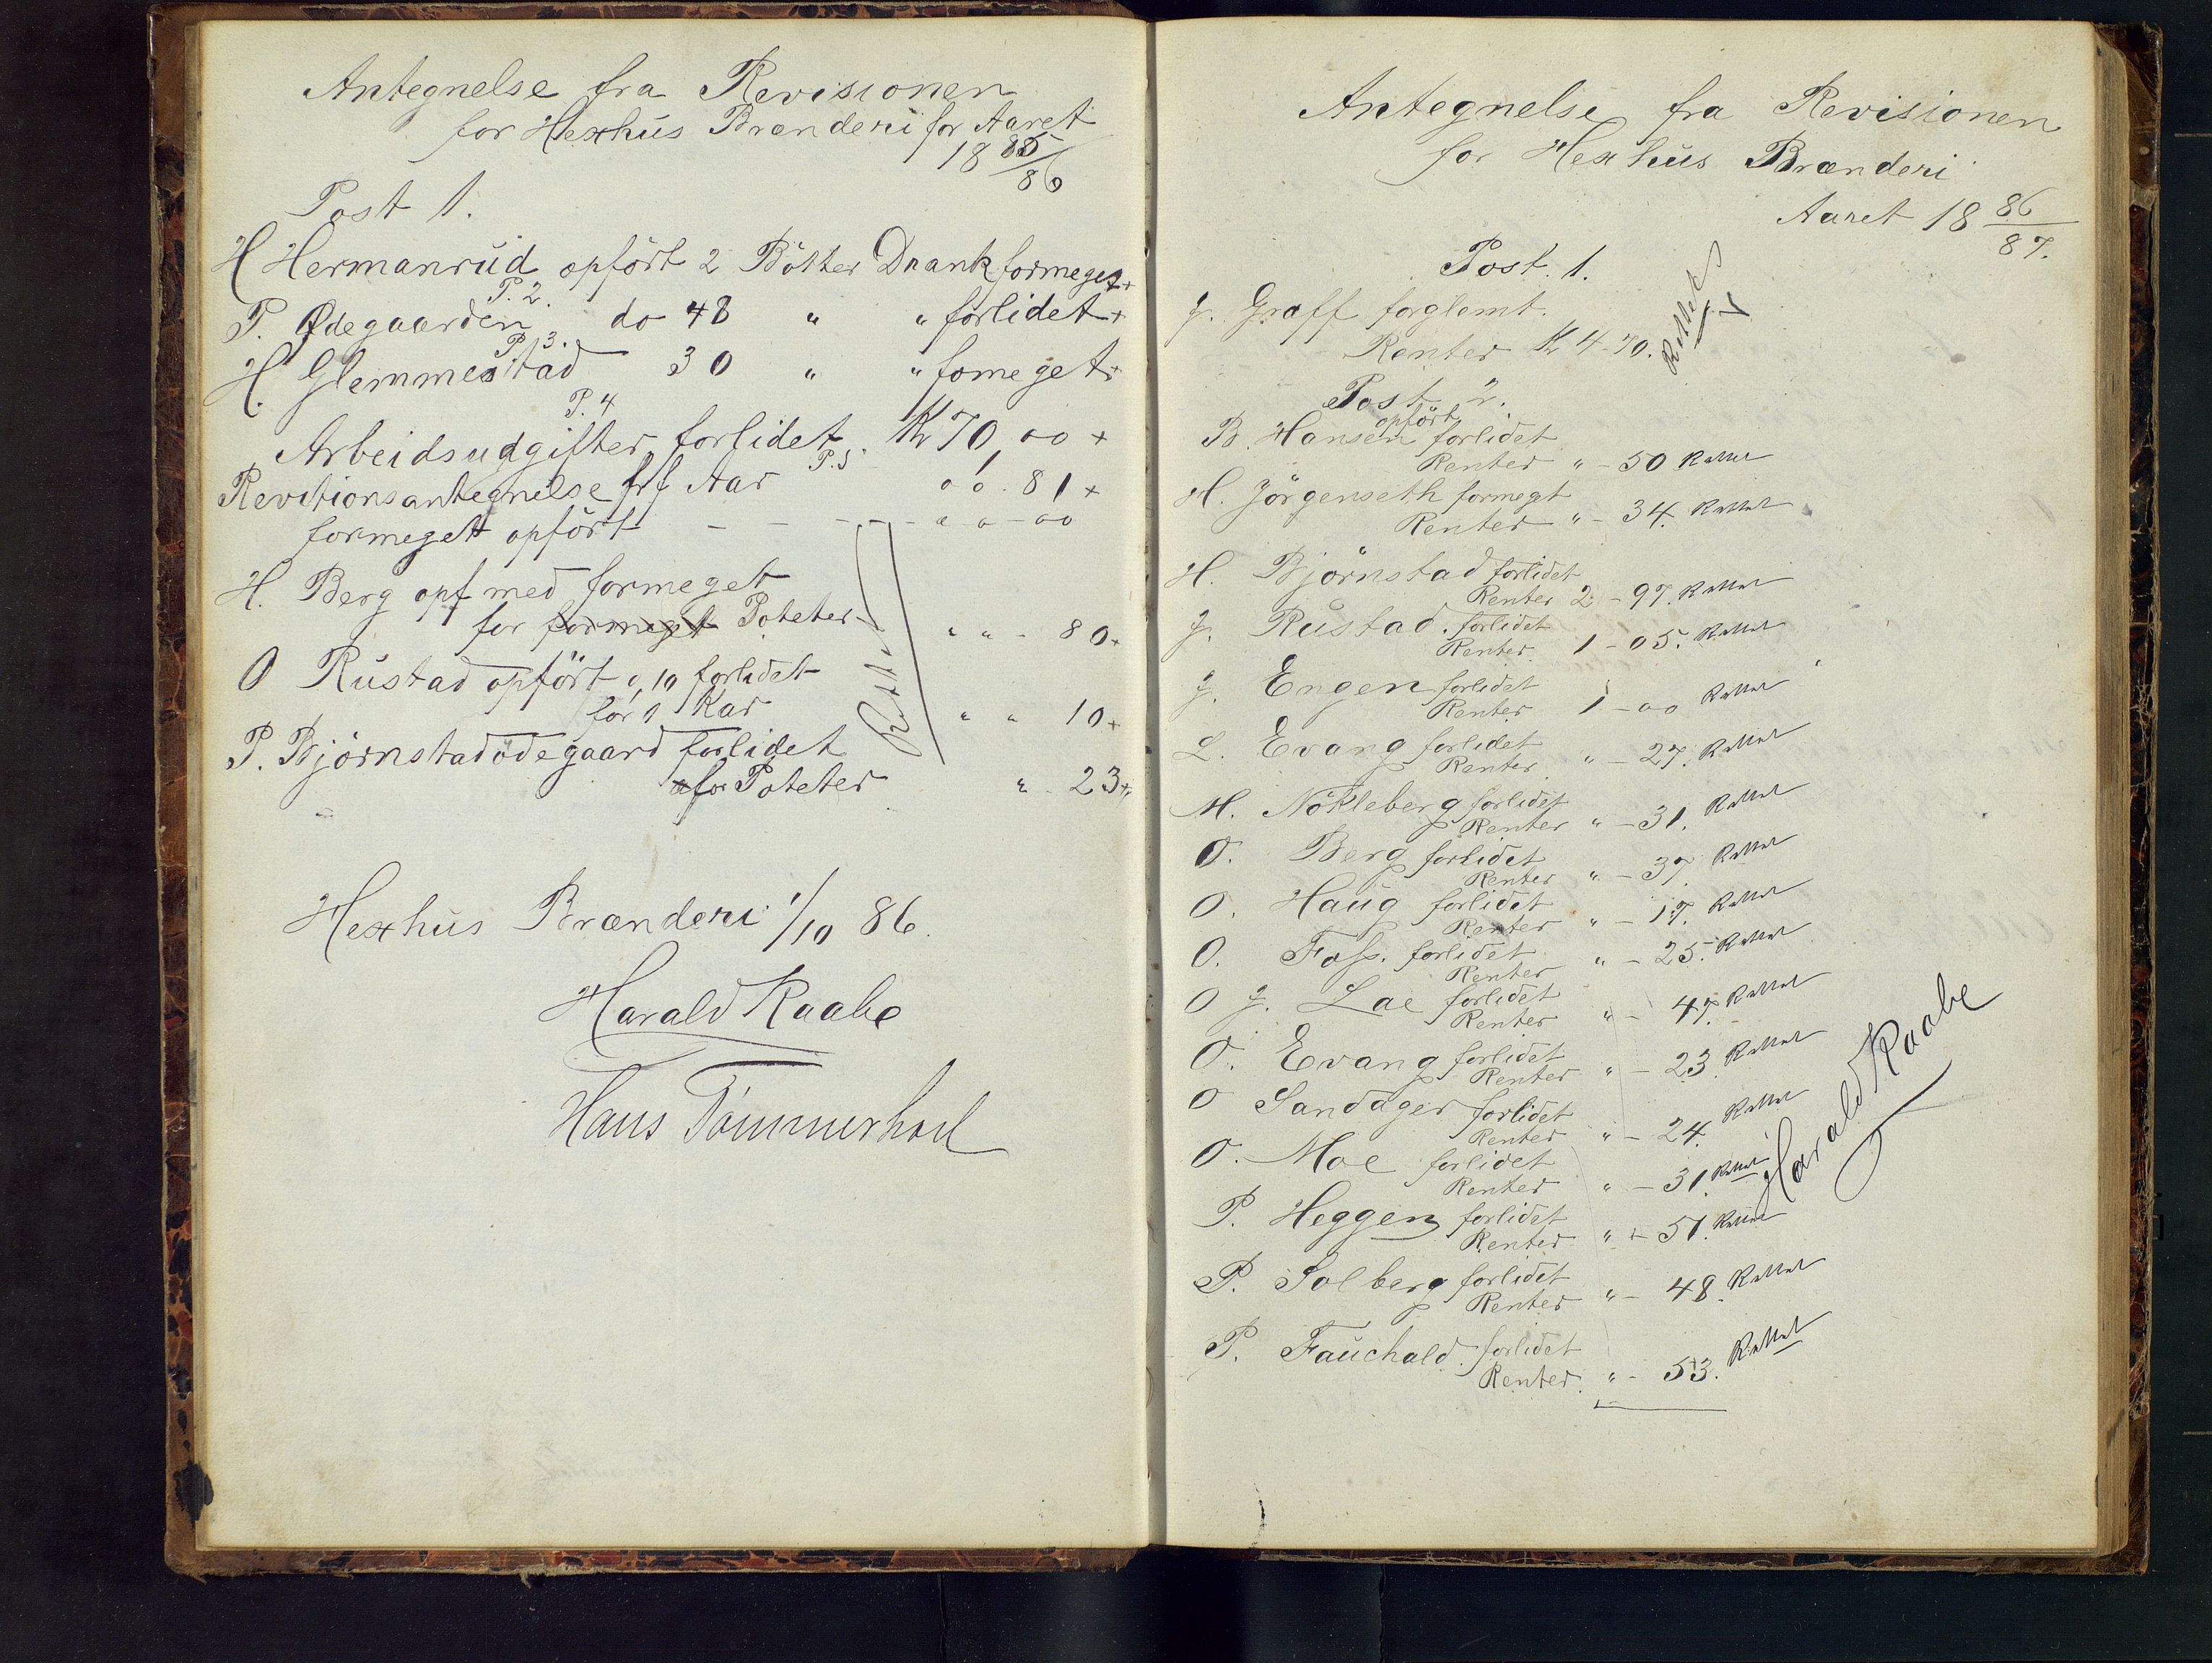 Antegnelse fra Revisionen
for Hexhus Brænderi for Aaret
18 85/86
Post 1.
H Hermanrud opført 2 Bötter Drank formeget +
P. 2.
P. Ødegaarden do 48 " " forlidet +
P. 3.
H. Glemmestad 30 " " fomeget +
P. 4
Arbeidsudgifter forlidet Kr 70,00 +
P. 5
Revitionsantegnelse frf Aar 00. 81 +
formeget opfört - - - - 00-00
H. Berg opf med formeget
for formeget Poteter " " - 80 +
O Rustad opfört 0,10 forlidet
for 1 Kar " " 10 +
P. Björnstadödegaard forlidet
for Poteter " - 23 +
Rettet
Hexhus Brænderi 1/10 86.
Harald Raabe
Hans Tömmerhol
Antegnelse fra Revisionen
for Hexhus Brænderi
Aaret 18 86/87.
Post. 1.
J. Graff forglemt.
Renter Kr 4-70. Rettet
Post 2.
opfört
B. Hansen forlidet
Renter " - 50 Rettet
H. Jörgenseth formegt
Renter " - 34. Rettet
H. Björnstad forlidet
Renter 2 - 97. Rettet
J. Rustad. forlidet
Renter 1 - 05. Rettet
J. Engen forlidet
Renter 1 - 00 Rettet
L. Evang forlidet
Renter " - 27. Rettet
M. Nökleberg forlidet
Renter " - 31. Rettet
O. Berg forlidet
Renter " - 37. Rettet
O. Haug forlidet
Renter " - 17. Rettet
O. Foss. forlidet
Renter " - 25. Rettet
O J. Lae forlidet
Renter " - 47. Rettet
O. Evang forlidet
Renter " - 23. Rettet
O Sandager forlidet
Renter " - 24. Rettet
O. Moe forlidet
Renter " - 31. Rettet
P. Heggen forlidet
Renter " - 51. Rettet
P. Solberg forlidet
Renter " - 48. Rettet
P. Fauchald. forlidet
Renter. " - 53. Rettet
Harald Raabe